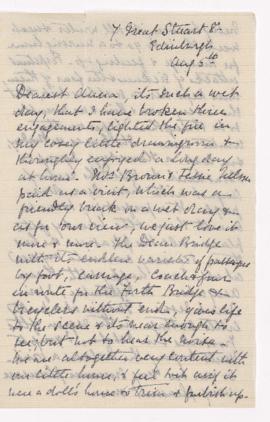 7 Great Stuart St.
Edinburgh
Aug 5th
Dearest Anna, its such a wet
day, that I have broken three
engagements, lighted the fire in
my cosy little drawingroom &
thoroughly enjoyed a long day
at home. Miss Brown &
paid us a visit, which was a
friendly break in a wet day. &
as for our view, we just love it
more & more. The Dean Bridge
with its endless varieties of passages
by foot, carriage, Coach & four
en route for the Forth Bridge &
bicyclers without end, gives life
to the scene & its near enough to
see, but not to hear the noise.
We are altogether very content with
our little home, & feel with as if it
were a doll's house to trim & furbish up.